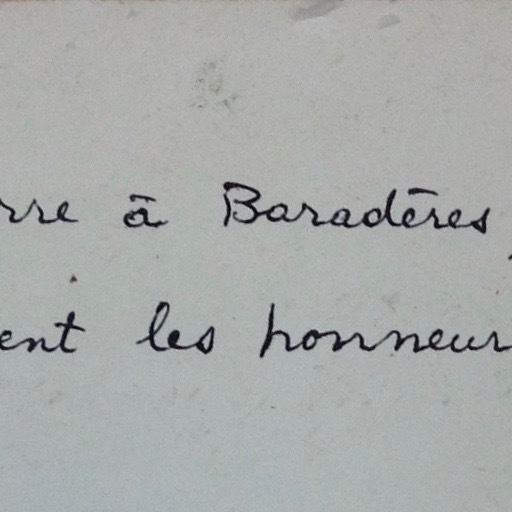 rre à Baradères,
ent les honneur